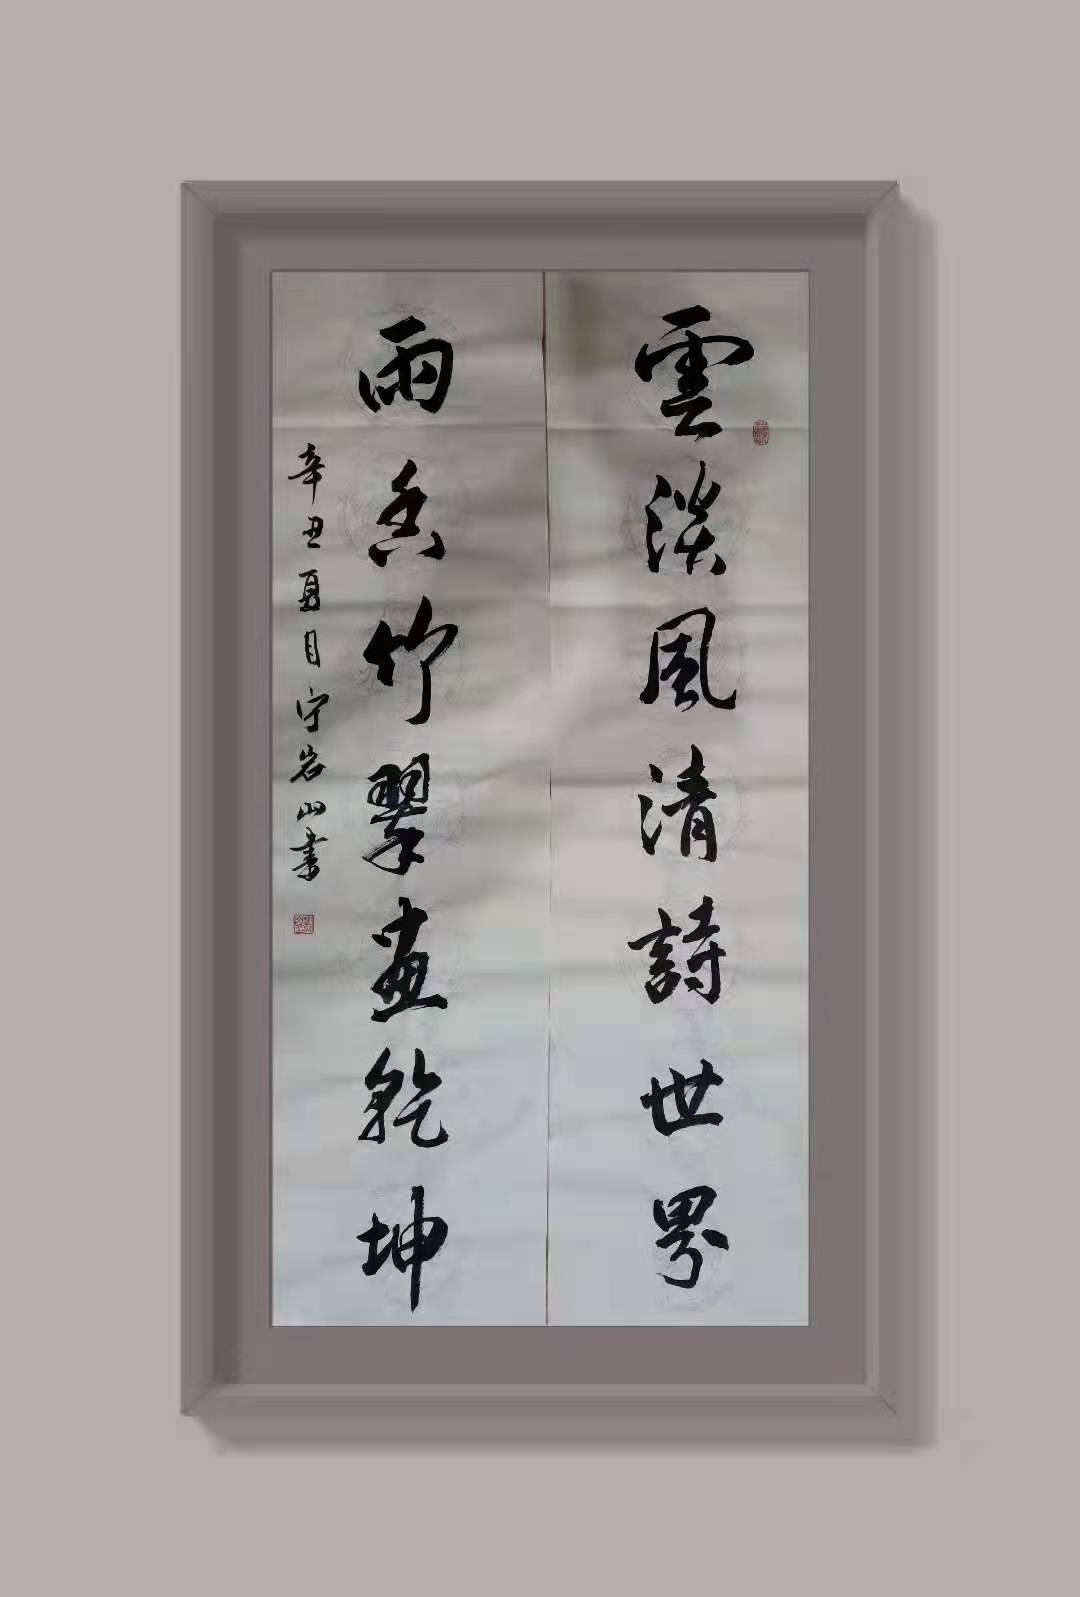 雲淡風清詩世界
雨香竹翠畫乾坤
辛丑夏月宁岩山書